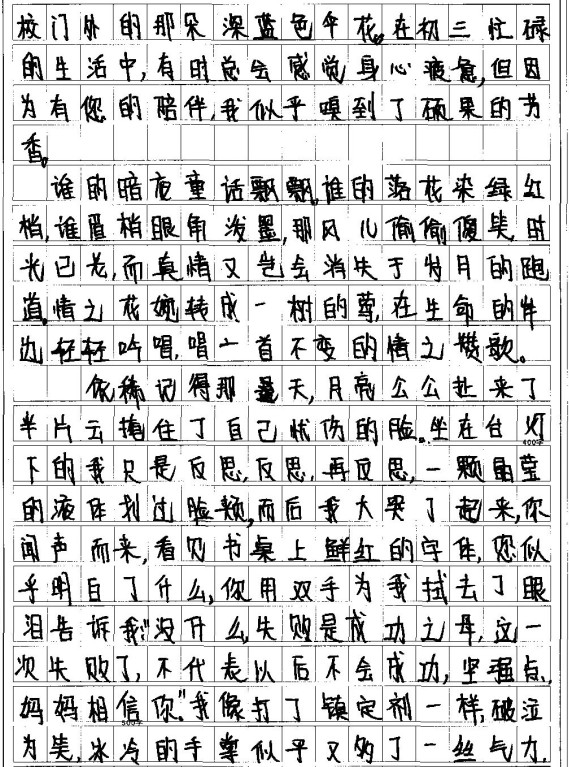 校门外的那朵深蓝色伞花。在初三忙碌
的生活中,有时总会感觉身心疲惫,但因
为有您的陪伴,我似乎嗅到了硕果的芳
香。
谁的暗夜童话飘飘。谁的落花染绿红
梢,谁眉梢眼角泼墨,那风儿偷偷傻笑。时
光已老,而真情又岂会消失于岁月的跑
道。情之花婉转成一树的尊,在生命的伴
边,轻轻吟唱,唱一首不变的情之赞歌。
依稀记得那是天,月亮公公扯来了
半片云掩住了自己忧伤的脸。坐在台灯
400字
下的我只是反思,反思,再反思,一颗晶莹
的液体划过脸颊,而后我大哭了起来,你
闻声而来,看见书桌上鲜红的字体,您似
乎明白了什么,你用双手为我拭去了眼
泪告诉我:"没什么,失败是成功之母,这一
次失败了,不代表以后不会成功,坚强点,
妈妈相信你。"我像打了镇定剂一样,破泣
500字
为笑,冰冷的手掌似乎又够了一丝气力,